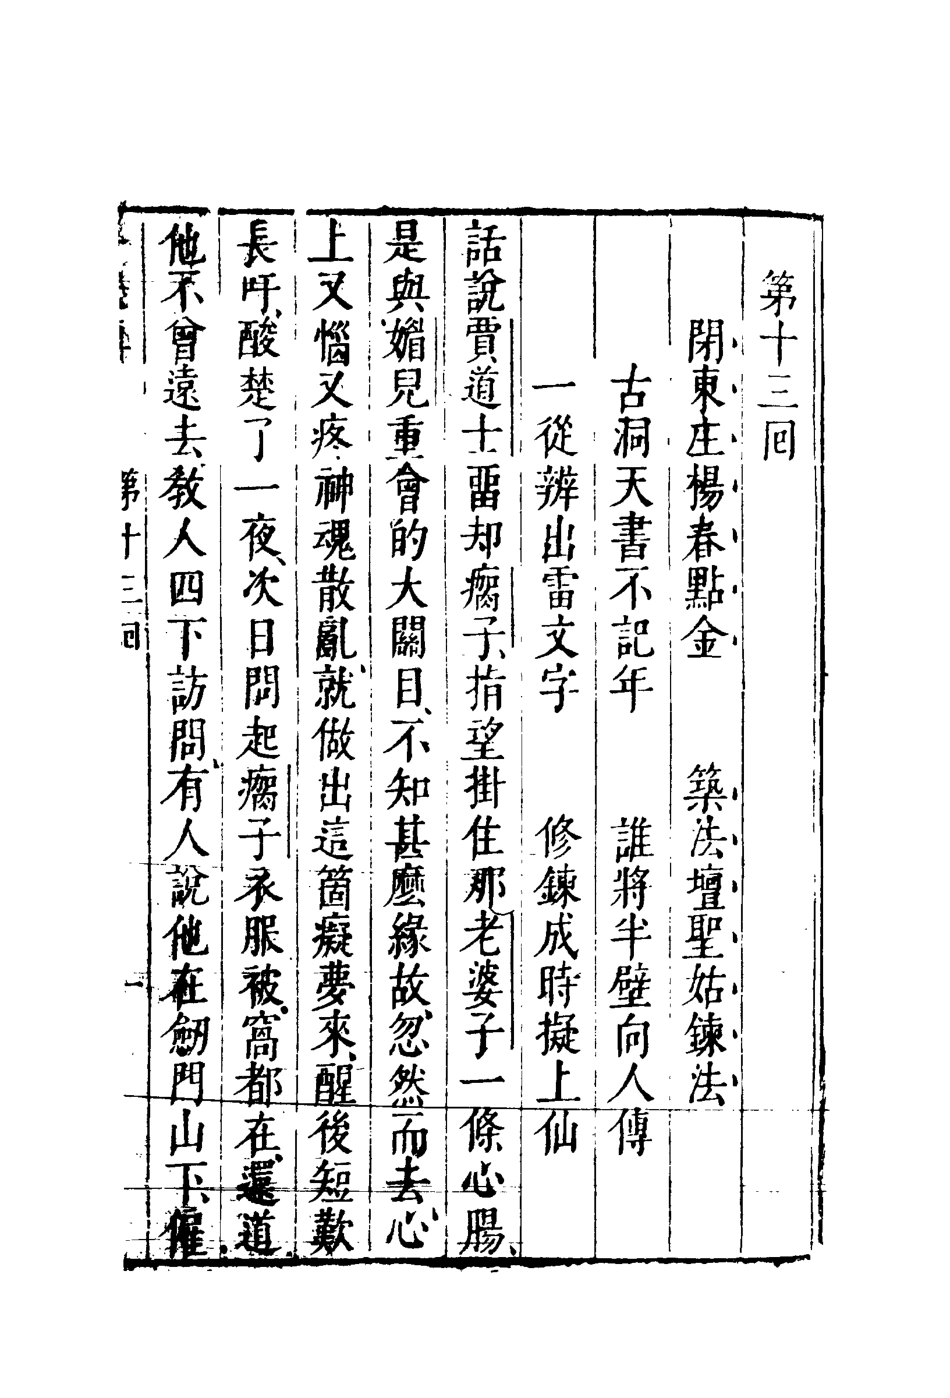 第十三回
閉東庄楊春點金　築法壇聖姑鍊法
古洞天書不記年　誰將半壁向人傳
一從辨出雷文字　修鍊成時擬上仙
話說賈道士畱却瘸子、指望掛住那老婆子一條心腸、
是與媚兒重會的大關目、不知甚麼緣故、忽然而去、心
上又惱又疼、神魂散亂、就做出這箇癡夢來、醒後短歎
長吁、酸楚了一夜、次日問起瘸子、衣服被窩都在、還道
他不曾遠去、教人四下訪問、有人說他在劒門山下、僱
第十三回
一